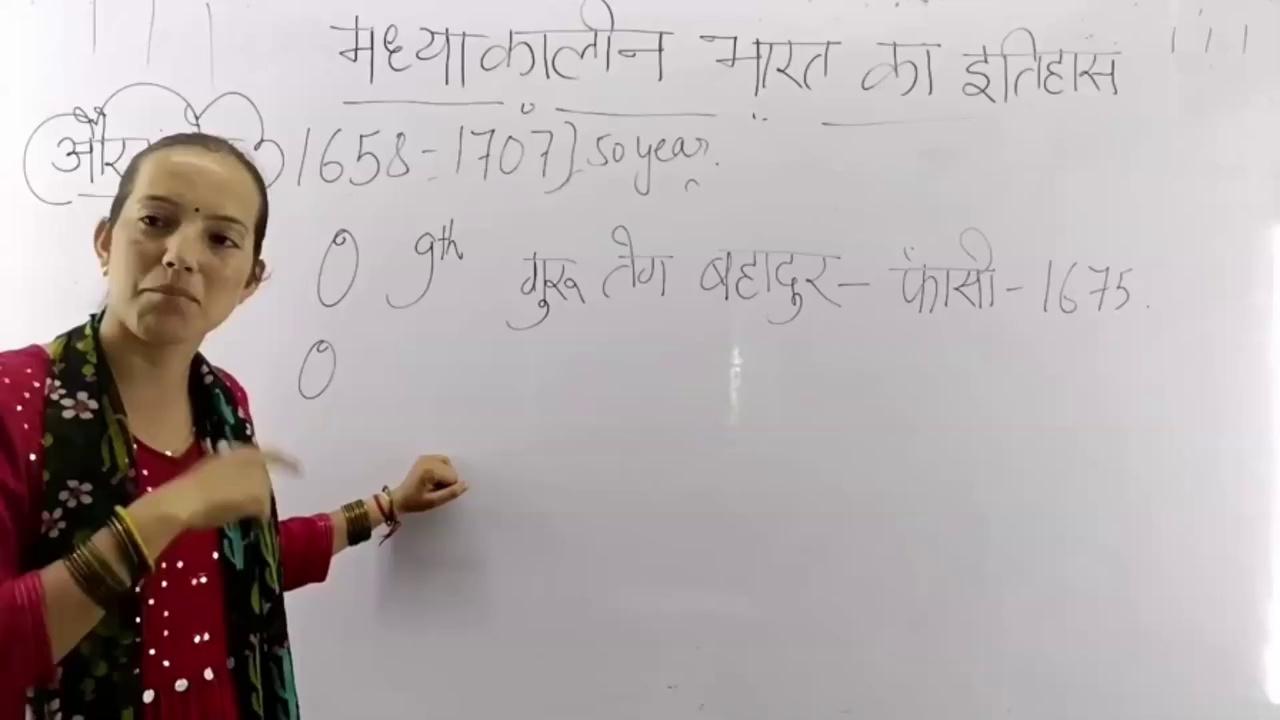 मध्याकालीन भारत का इतिहास
1658-1707] 50 year.
9th गुरू तेग बहादुर - फांसी - 1675.